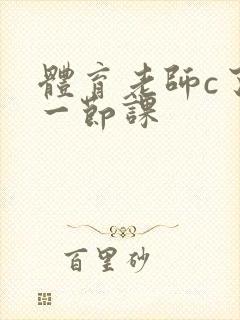 體育老師c了
一節課
百里砂